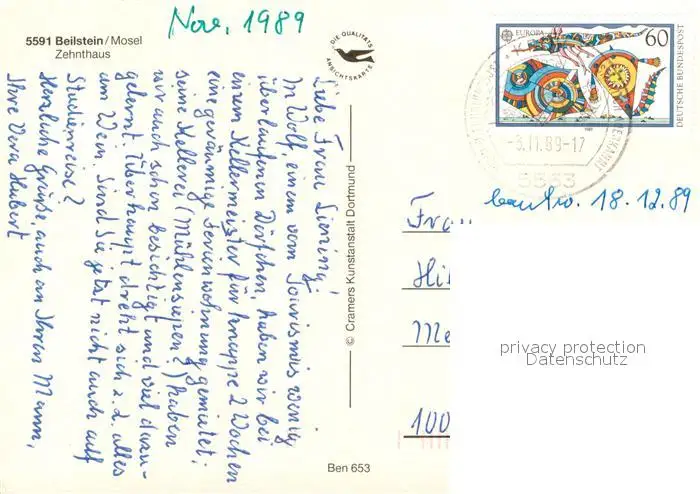 Nov. 1989
5591 Beilstein/Mosel
Zehnthaus
DIE QUALITÄTS
ANSICHTSKARTE
Liebe Frau Liening!
In Wolf, einem vom Tourismus wenig
überlaufenen Dörfchen, haben wir bei
einem Kellermeister für knappe 2 Wochen
eine geräumige Ferienwohnung gemietet.
seine Kellerei (Mühlensiepen?) haben
wir auch schon besichtigt und viel dazu-
gelernt. Überhaupt dreht sich z.Z. alles
um Wein. Sind Sie jetzt nicht auch auf
Studienreise?
Herzliche Grüße, auch an Ihren Mann,
Ihre Vera Hubert
© Cramers Kunstanstalt Dortmund
Ben 653
EUROPA
60
DEUTSCHE BUNDESPOST
-3.11.89-17
beantw. 18.12.89
Frau
Hil
Me
100
privacy protection
Datenschutz